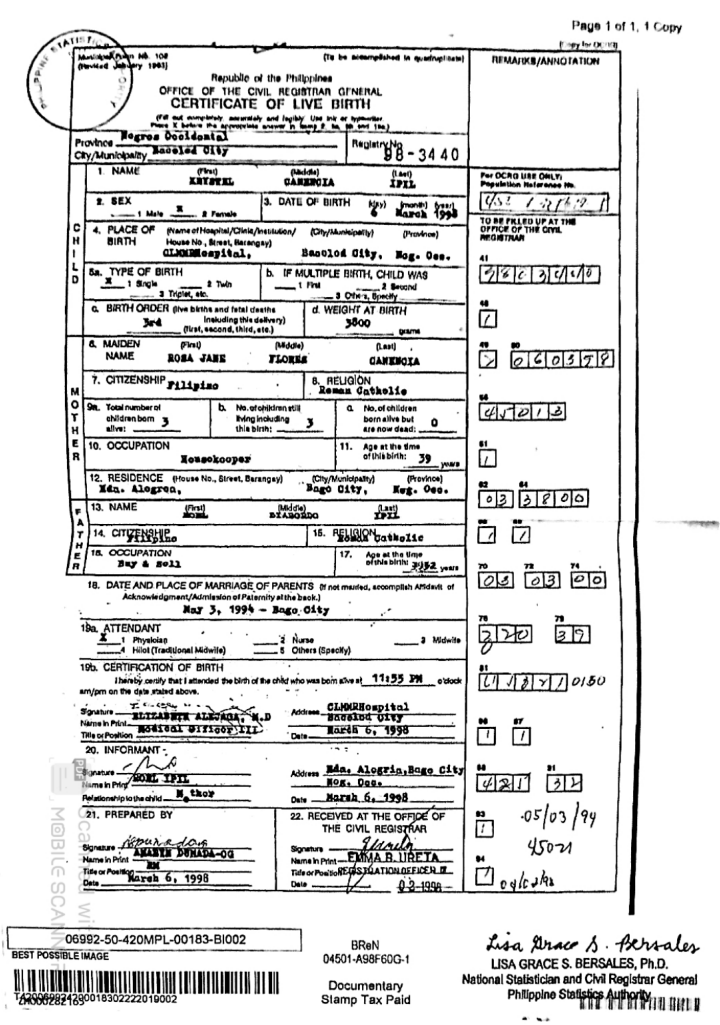 Page 1 of 1, 1 Copy
(Copy for OCRG)
Municipal Form No. 102 (To be accomplished in quadruplicate)
(Revised January 1993)
REMARKS/ANNOTATION
Republic of the Philippines
OFFICE OF THE CIVIL REGISTRAR GENERAL
CERTIFICATE OF LIVE BIRTH
(Fill out completely, accurately and legibly. Use ink or typewriter.
Place X before the appropriate answer in
Province Negros Occidental
City/Municipality Bacolod City
Registry No. 98-3440
CHILD
1. NAME (First) (Middle) (Last)
KRYSTEL CANENCIA IPIL
For OCRG USE ONLY:
Population Reference No.
2. SEX
1 Male X 2 Female
3. DATE OF BIRTH (day) (month) (year)
6 March 1998
TO BE FILLED UP AT THE
OFFICE OF THE CIVIL
REGISTRAR
4. PLACE OF BIRTH (Name of Hospital/Clinic/Institution/ (City/Municipality) (Province)
House No., Street, Barangay)
CLMMRHospital, Bacolod City, Neg. Occ.
5a. TYPE OF BIRTH
X 1 Single 2 Twin
3 Triplet, etc.
b. IF MULTIPLE BIRTH, CHILD WAS
1 First 2 Second
3 Others, Specify
41
c. BIRTH ORDER (live births and fetal deaths
including this delivery)
3rd
(first, second, third, etc.)
d. WEIGHT AT BIRTH
3800
grams
48
1
MOTHER
6. MAIDEN NAME (First) (Middle) (Last)
ROSA JANE FLORES CANENCIA
49 50
060398
7. CITIZENSHIP Filipino
8. RELIGION
Roman Catholic
9a. Total number of
children born
alive: 3
b. No. of children still
living including
this birth: 3
c. No. of children
born alive but
are now dead: 0
56
45013
10. OCCUPATION
Housekeeper
11. Age at the time
of this birth: 39 years
61
1
12. RESIDENCE (House No., Street, Barangay) (City/Municipality) (Province)
Hda. Alegren, Bago City, Neg. Occ.
62 64
03 3800
FATHER
13. NAME (First) (Middle) (Last)
NOEL IPIL
14. CITIZENSHIP
Filipino
15. RELIGION
Roman Catholic
1
16. OCCUPATION
Buy & Sell
17. Age at the time
of this birth: years
70 72 74
03 03 00
18. DATE AND PLACE OF MARRIAGE OF PARENTS (If not married, accomplish Affidavit of
Acknowledgment/Admission of Paternity at the back.)
May 3, 1994 - Bago City
19a. ATTENDANT
X 1 Physician 2 Nurse 3 Midwife
4 Hilot (Traditional Midwife) 5 Others (Specify)
76 79
220 39
19b. CERTIFICATION OF BIRTH
I hereby certify that I attended the birth of the child who was born alive at 11:55 PM o'clock
am/pm on the date stated above.
81
0150
Signature
Name in Print ELIZABETH ALEJAGA, M.D
Title or Position Medical Officer III
Address CLMMRHospital
Bacolod City
Date March 6, 1998
86 87
1 1
20. INFORMANT
Signature
Name in Print NOEL IPIL
Relationship to the child
Address Hda. Alegria, Bago City
Neg. Occ.
Date March 6, 1998
88 91
421 32
21. PREPARED BY
Signature
Name in Print
Title or Position RM
Date March 6, 1998
22. RECEIVED AT THE OFFICE OF
THE CIVIL REGISTRAR
Signature
Name in Print EMMA B. URETA
Title or Position REGISTRATION OFFICER
Date
93
1
05/03/94
45021
94
06992-50-420MPL-00183-BI002
BEST POSSIBLE IMAGE
BReN
04501-A98F60G-1
Documentary
Stamp Tax Paid
Lisa Grace S. Bersales
LISA GRACE S. BERSALES, Ph.D.
National Statistician and Civil Registrar General
Philippine Statistics Authority